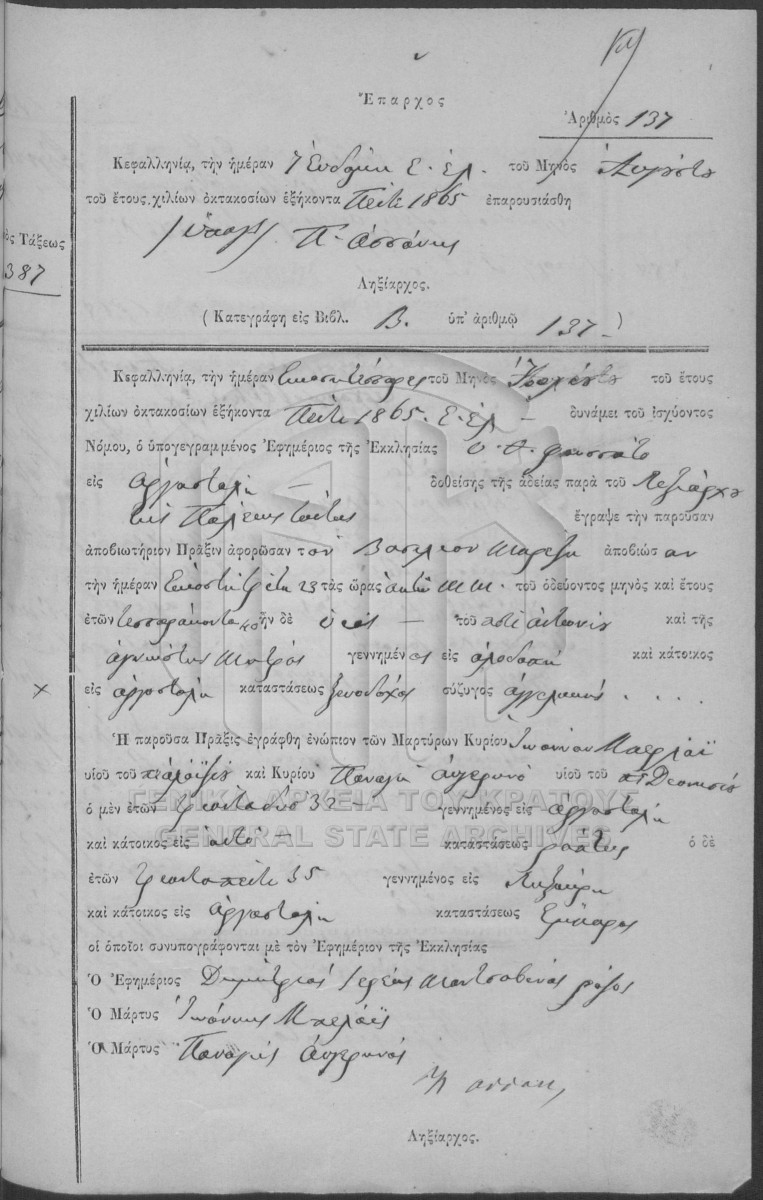 Ἔπαρχος
Ἀριθμὸς 137
Κεφαλληνίᾳ, τὴν ἡμέραν 7 Ε. Ἑλ. τοῦ Μηνὸς
τοῦ ἔτους χιλίων ὀκτακοσίων ἑξήκοντα Πέντε 1865 ἐπαρουσιάσθη
Ληξίαρχος.
ὸς Τάξεως
387
(Κατεγράφη εἰς Βιβλ. Β. ὑπ' ἀριθμῷ 137-)
Κεφαλληνίᾳ, τὴν ἡμέραν τοῦ Μηνὸς τοῦ ἔτους
χιλίων ὀκτακοσίων ἑξήκοντα Πέντε 1865. Ε. Ἑλ - δυνάμει τοῦ ἰσχύοντος
Νόμου, ὁ ὑπογεγραμμένος Ἐφημέριος τῆς Ἐκκλησίας
εἰς Ἀργοστολι - δοθείσης τῆς ἀδείας παρὰ τοῦ Ληξιάρχου
τῆς Πόλεως ταύτης ἔγραψε τὴν παροῦσαν
ἀποβιωτήριον Πρᾶξιν ἀφορῶσαν τον Βασίλειον ἀποβιώσαν
τὴν ἡμέραν 23 τὰς ὥρας ὀκτὼ Μ.Μ. τοῦ ὁδεύοντος μηνὸς καὶ ἔτους
ἐτῶν τεσσαράκοντα 40 ἦν δὲ υἱός - τοῦ ποτὲ Ἀντωνίου καὶ τῆς
ἀγνώστου Μητρός γεννημένος εἰς ἀλοδαπή καὶ κάτοικος
× εἰς Ἀργοστόλι καταστάσεως ξενοδόχος σύζυγος . . . .
Ἡ παροῦσα Πρᾶξις ἐγράφθη ἐνώπιον τῶν Μαρτύρων Κυρίου Ἰωάννου
υἱοῦ τοῦ καὶ Κυρίου Παναγῆ Αὐγερινό υἱοῦ τοῦ
ὁ μὲν ἐτῶν τριανταδύο 32 - γεννημένος εἰς Ἀργοστόλι
καὶ κάτοικος εἰς αὐτό - καταστάσεως ράπτης ὁ δὲ
ἐτῶν τριανταπέντε 35 γεννημένος εἰς Ληξούρι
καὶ κάτοικος εἰς Ἀργοστόλι καταστάσεως
οἱ ὁποῖοι συνυπογράφονται μὲ τὸν Ἐφημέριον τῆς Ἐκκλησίας
Ὁ Ἐφημέριος Δημήτριος Ἱερεύς
Ὁ Μάρτυς Ἰωάννης
Ὁ Μάρτυς Παναγής Αὐγερινός
Ληξίαρχος.
ΓΕΝΙΚΑ ΑΡΧΕΙΑ ΤΟΥ ΚΡΑΤΟΥΣ
GENERAL STATE ARCHIVES